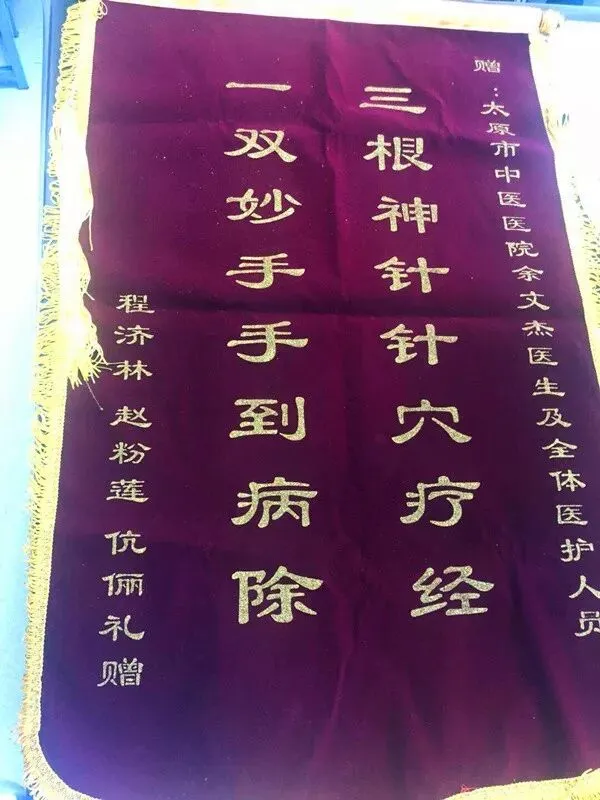 赠：太原市中医医院余文杰医生及全体医护人员
三根神针针穴疗经
一双妙手手到病除
程济林 赵粉莲 伉俪礼赠